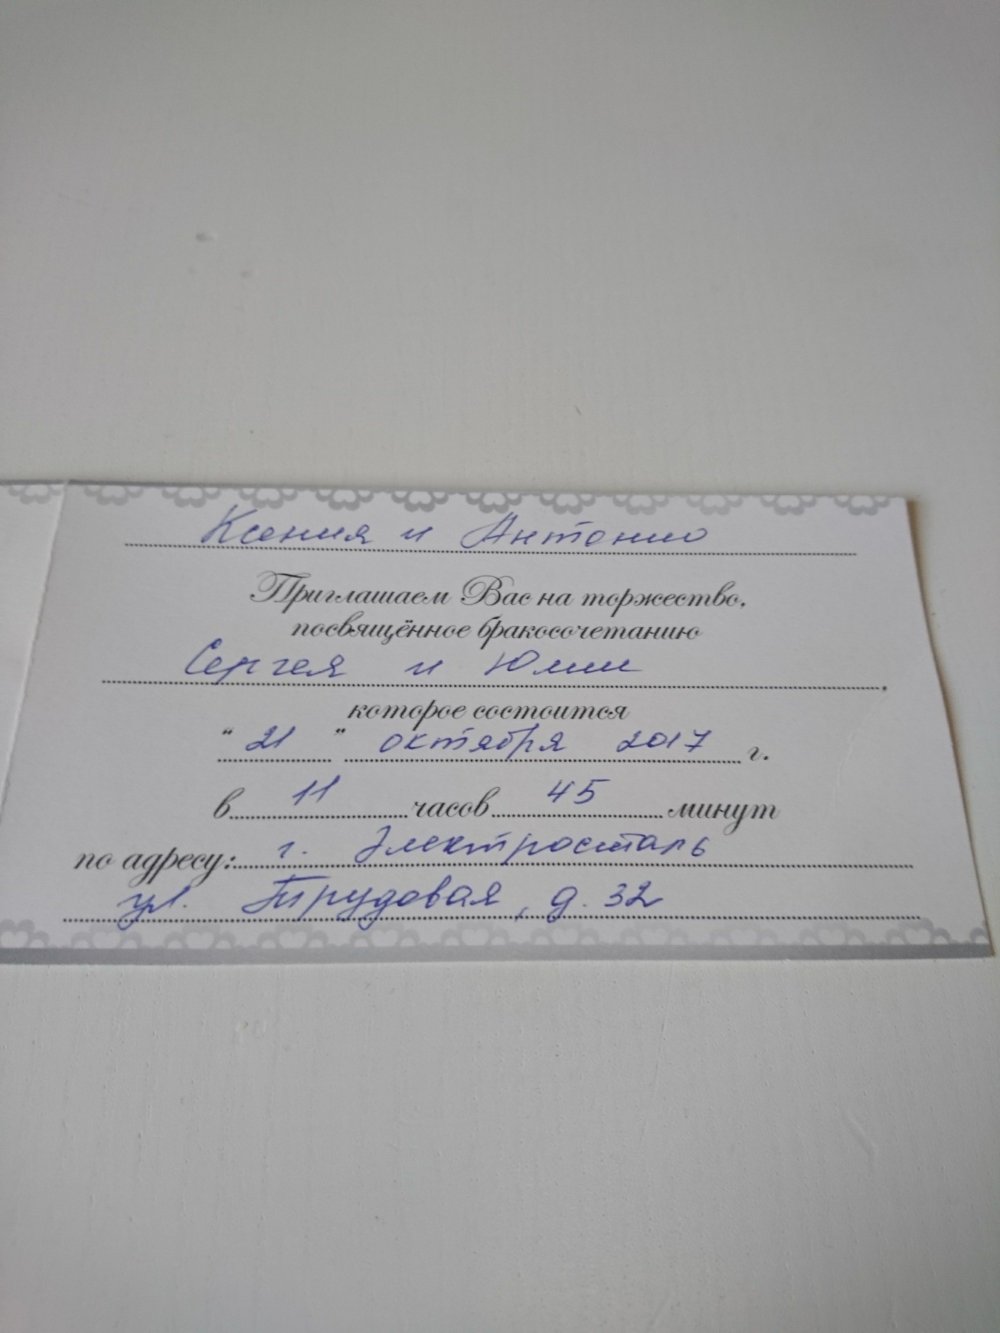 Ксения и Антонио
Приглашаем Вас на торжество,
посвящённое бракосочетанию
Сергея и Юлии,
которое состоится
"21" октября 2017 г.
в 11 часов 45 минут
по адресу: г. Электросталь
ул. Трудовая, д. 32